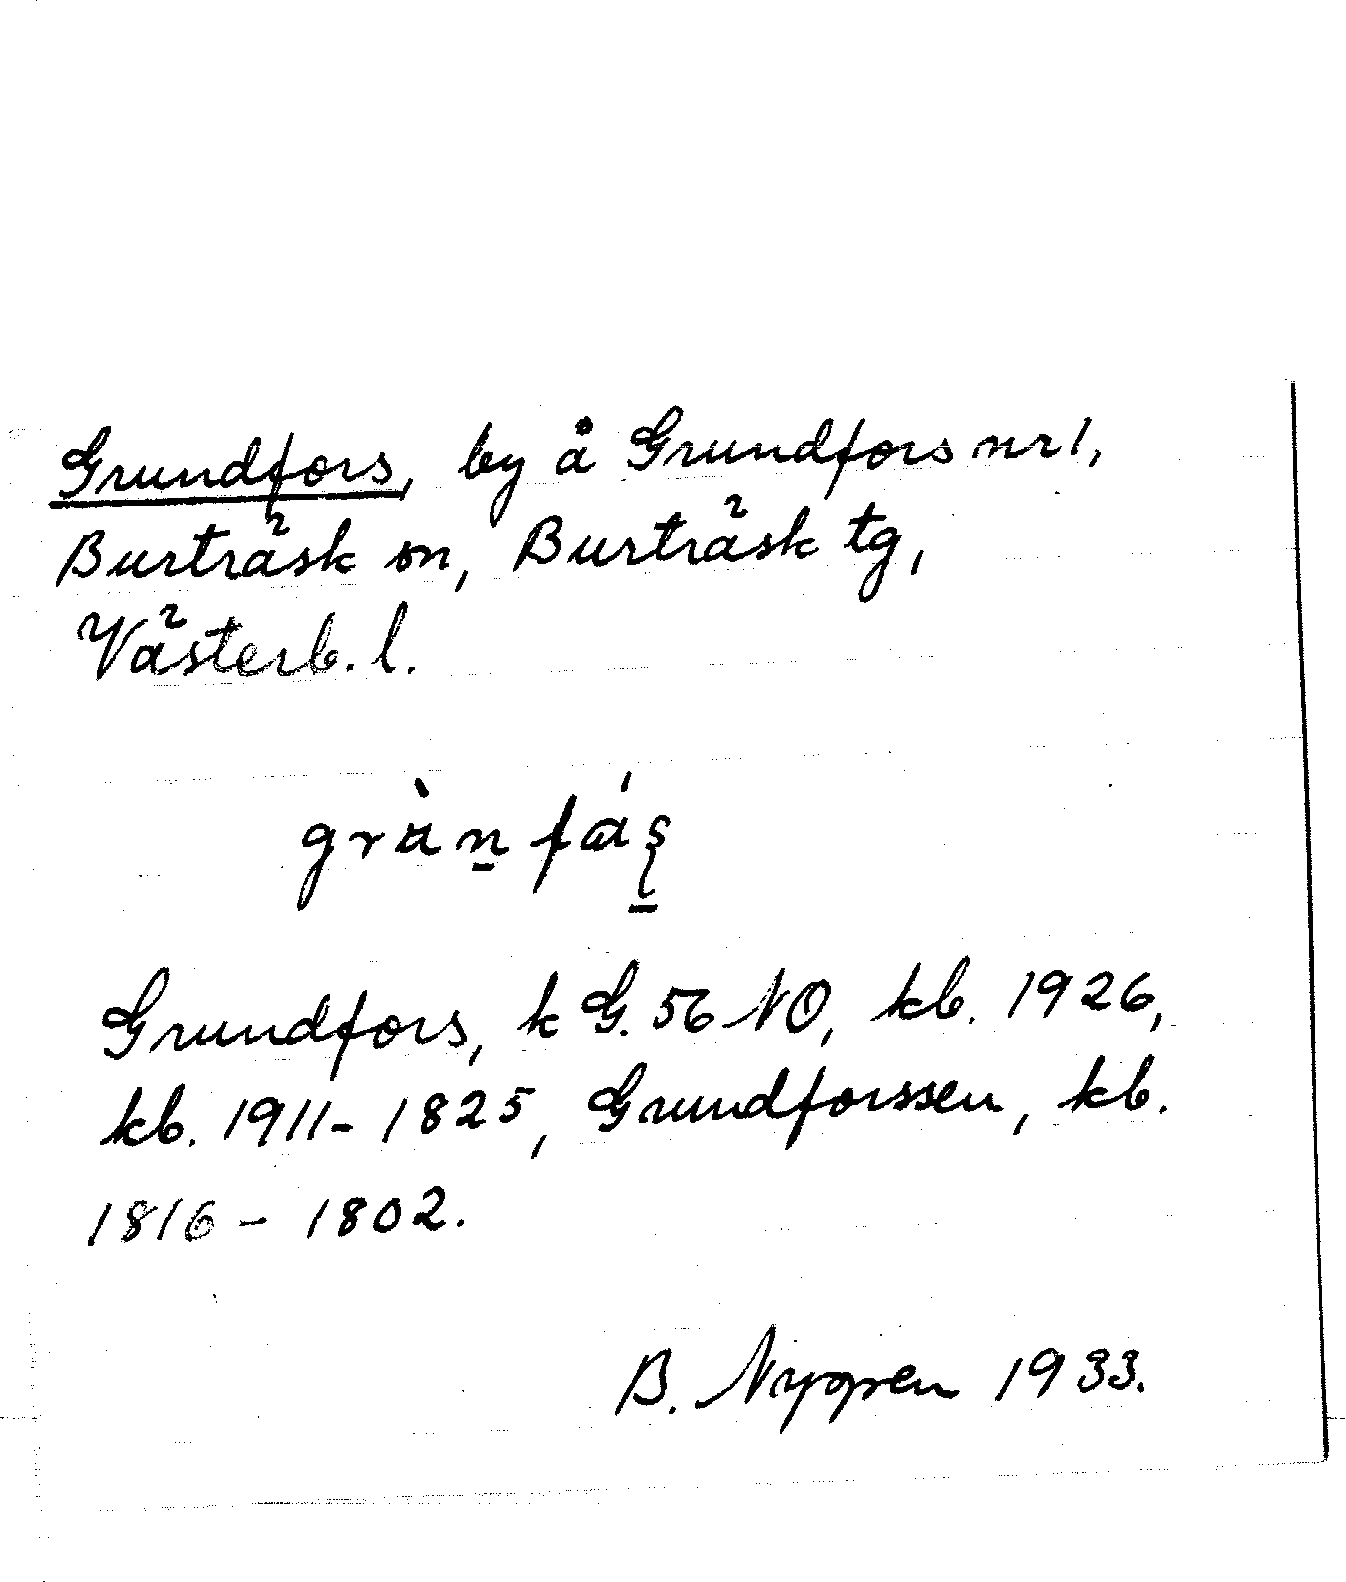 Grundfors, by å Grundfors nr 1,
Burträsk sn, Burträsk tg,
Västerb. l.
Grundfors, k G. 56 NO, kb. 1926,
kb. 1911- 1825, Grundforssen, kb.
1816 - 1802.
B. Nygren 1933.